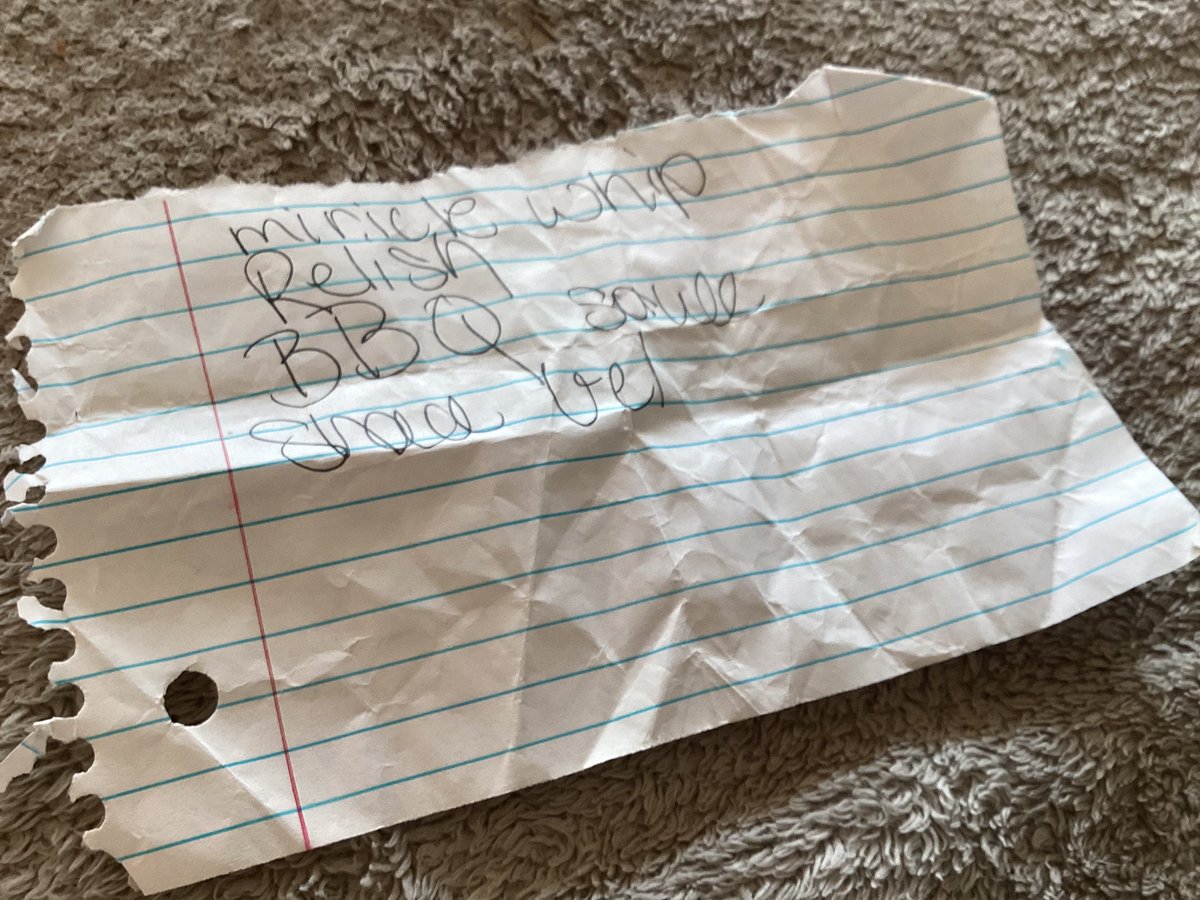 miricle whip
Relish
BBQ sauce
gel